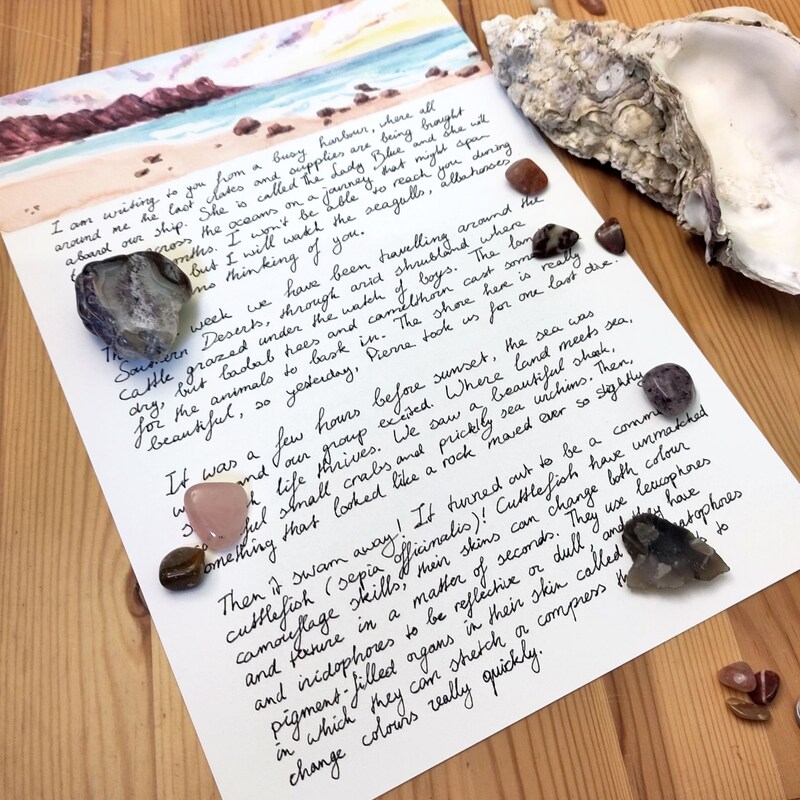 I am writing to you from a busy harbour, where all
around me the last crates and supplies are being brought
aboard our ship. She is called The Lady Blue and she will
across the oceans on a journey that might span
months. I won't be able to reach you during
but I will watch the seagulls, albatrosses
thinking of you.
week we have been travelling around the
Southern Deserts, through arid shrubland where
cattle grazed under the watch of boys. The land
dry, but baobab trees and camelthorn cast some
for the animals to bask in. The shore here is really
beautiful, so yesterday, Pierre took us for one last dive.
It was a few hours before sunset, the sea was
and our group excited. Where land meets sea,
life thrives. We saw a beautiful shark,
small crabs and prickly sea urchins. Then,
something that looked like a rock moved ever so slightly
Then it swam away! It turned out to be a common
cuttlefish (sepia officinalis)! Cuttlefish have unmatched
camouflage skills, their skins can change both colour
and texture in a matter of seconds. They use leucophores
and iridophores to be reflective or dull, and they have
pigment-filled organs in their skin called
in which they can stretch or compress to
change colours really quickly.